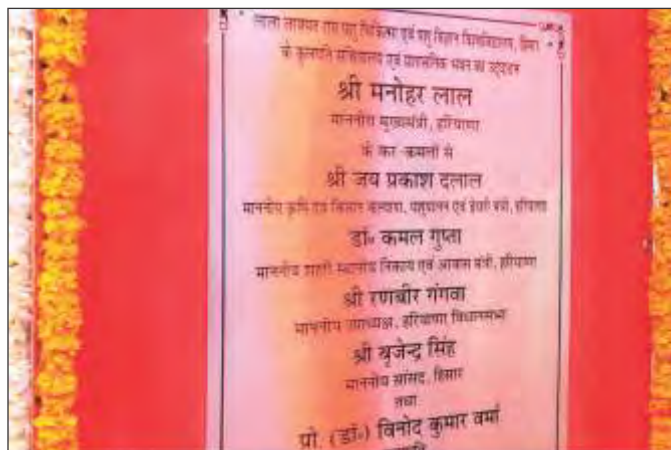 लाला लाजपत राय पशु चिकित्सा एवं पशु विज्ञान विश्वविद्यालय, हिसार
के कुलपति सचिवालय एवं प्रशासनिक भवन का उद्घाटन
श्री मनोहर लाल
माननीय मुख्यमंत्री, हरियाणा
के कर कमलों से
श्री जय प्रकाश दलाल
माननीय कृषि एवं किसान कल्याण, पशुपालन एवं डेयरी मंत्री, हरियाणा
डॉ॰ कमल गुप्ता
माननीय शहरी स्थानीय निकाय एवं आवास मंत्री, हरियाणा
श्री रणबीर गंगवा
माननीय उपाध्यक्ष, हरियाणा विधानसभा
श्री बृजेन्द्र सिंह
माननीय सांसद, हिसार
तथा
प्रो. (डॉ॰) विनोद कुमार वर्मा